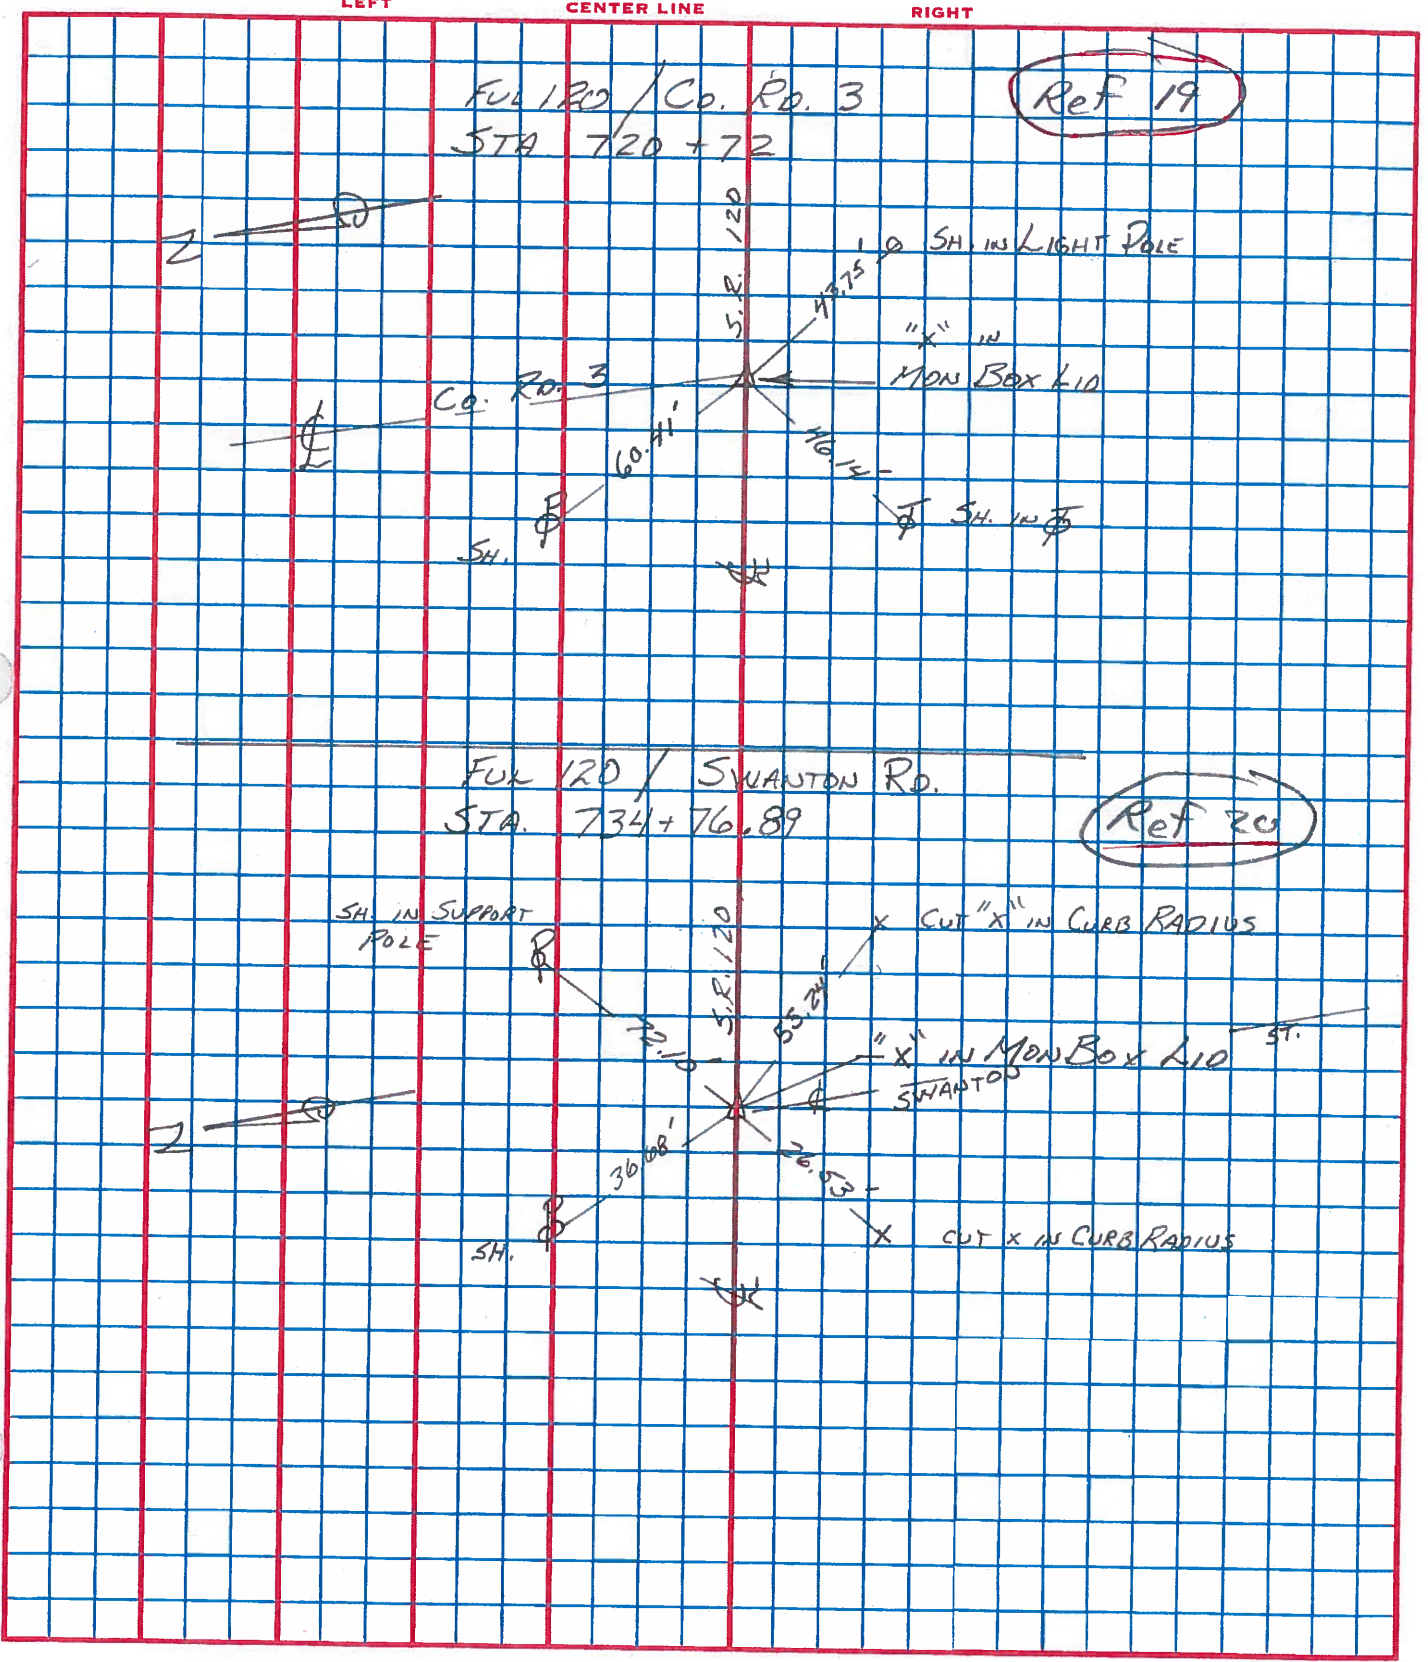 LEFT CENTER LINE RIGHT
FUL 120 / CO. RD. 3
Ref 19
STA 720 + 72
S.R. 120
N
43.75'
SH. IN LIGHT POLE
"X" IN
MON BOX LID
CO. RD. 3
60.41'
SH.
SH. IN
FUL 120 / SWANTON RD.
STA. 734 + 76.89
Ref 20
SH. IN SUPPORT
POLE
S.R. 120
CUT "X" IN CURB RADIUS
55.24'
72.10'
"X" IN MON BOX LID
SWANTON
ST.
N
36.68'
26.53'
SH.
CUT X IN CURB RADIUS